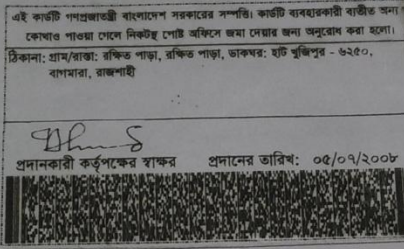 এই কার্ডটি গণপ্রজাতন্ত্রী বাংলাদেশ সরকারের সম্পত্তি। কার্ডটি ব্যবহারকারী ব্যতীত অন্য
কোথাও পাওয়া গেলে নিকটস্থ পোষ্ট অফিসে জমা দেয়ার জন্য অনুরোধ করা হলো।
ঠিকানা: গ্রাম/রাস্তা: রক্ষিত পাড়া, রক্ষিত পাড়া, ডাকঘর: হাট খুজিপুর - ৬২৫০,
বাগমারা, রাজশাহী
প্রদানকারী কর্তৃপক্ষের স্বাক্ষর প্রদানের তারিখ: ০৫/০৭/২০০৮